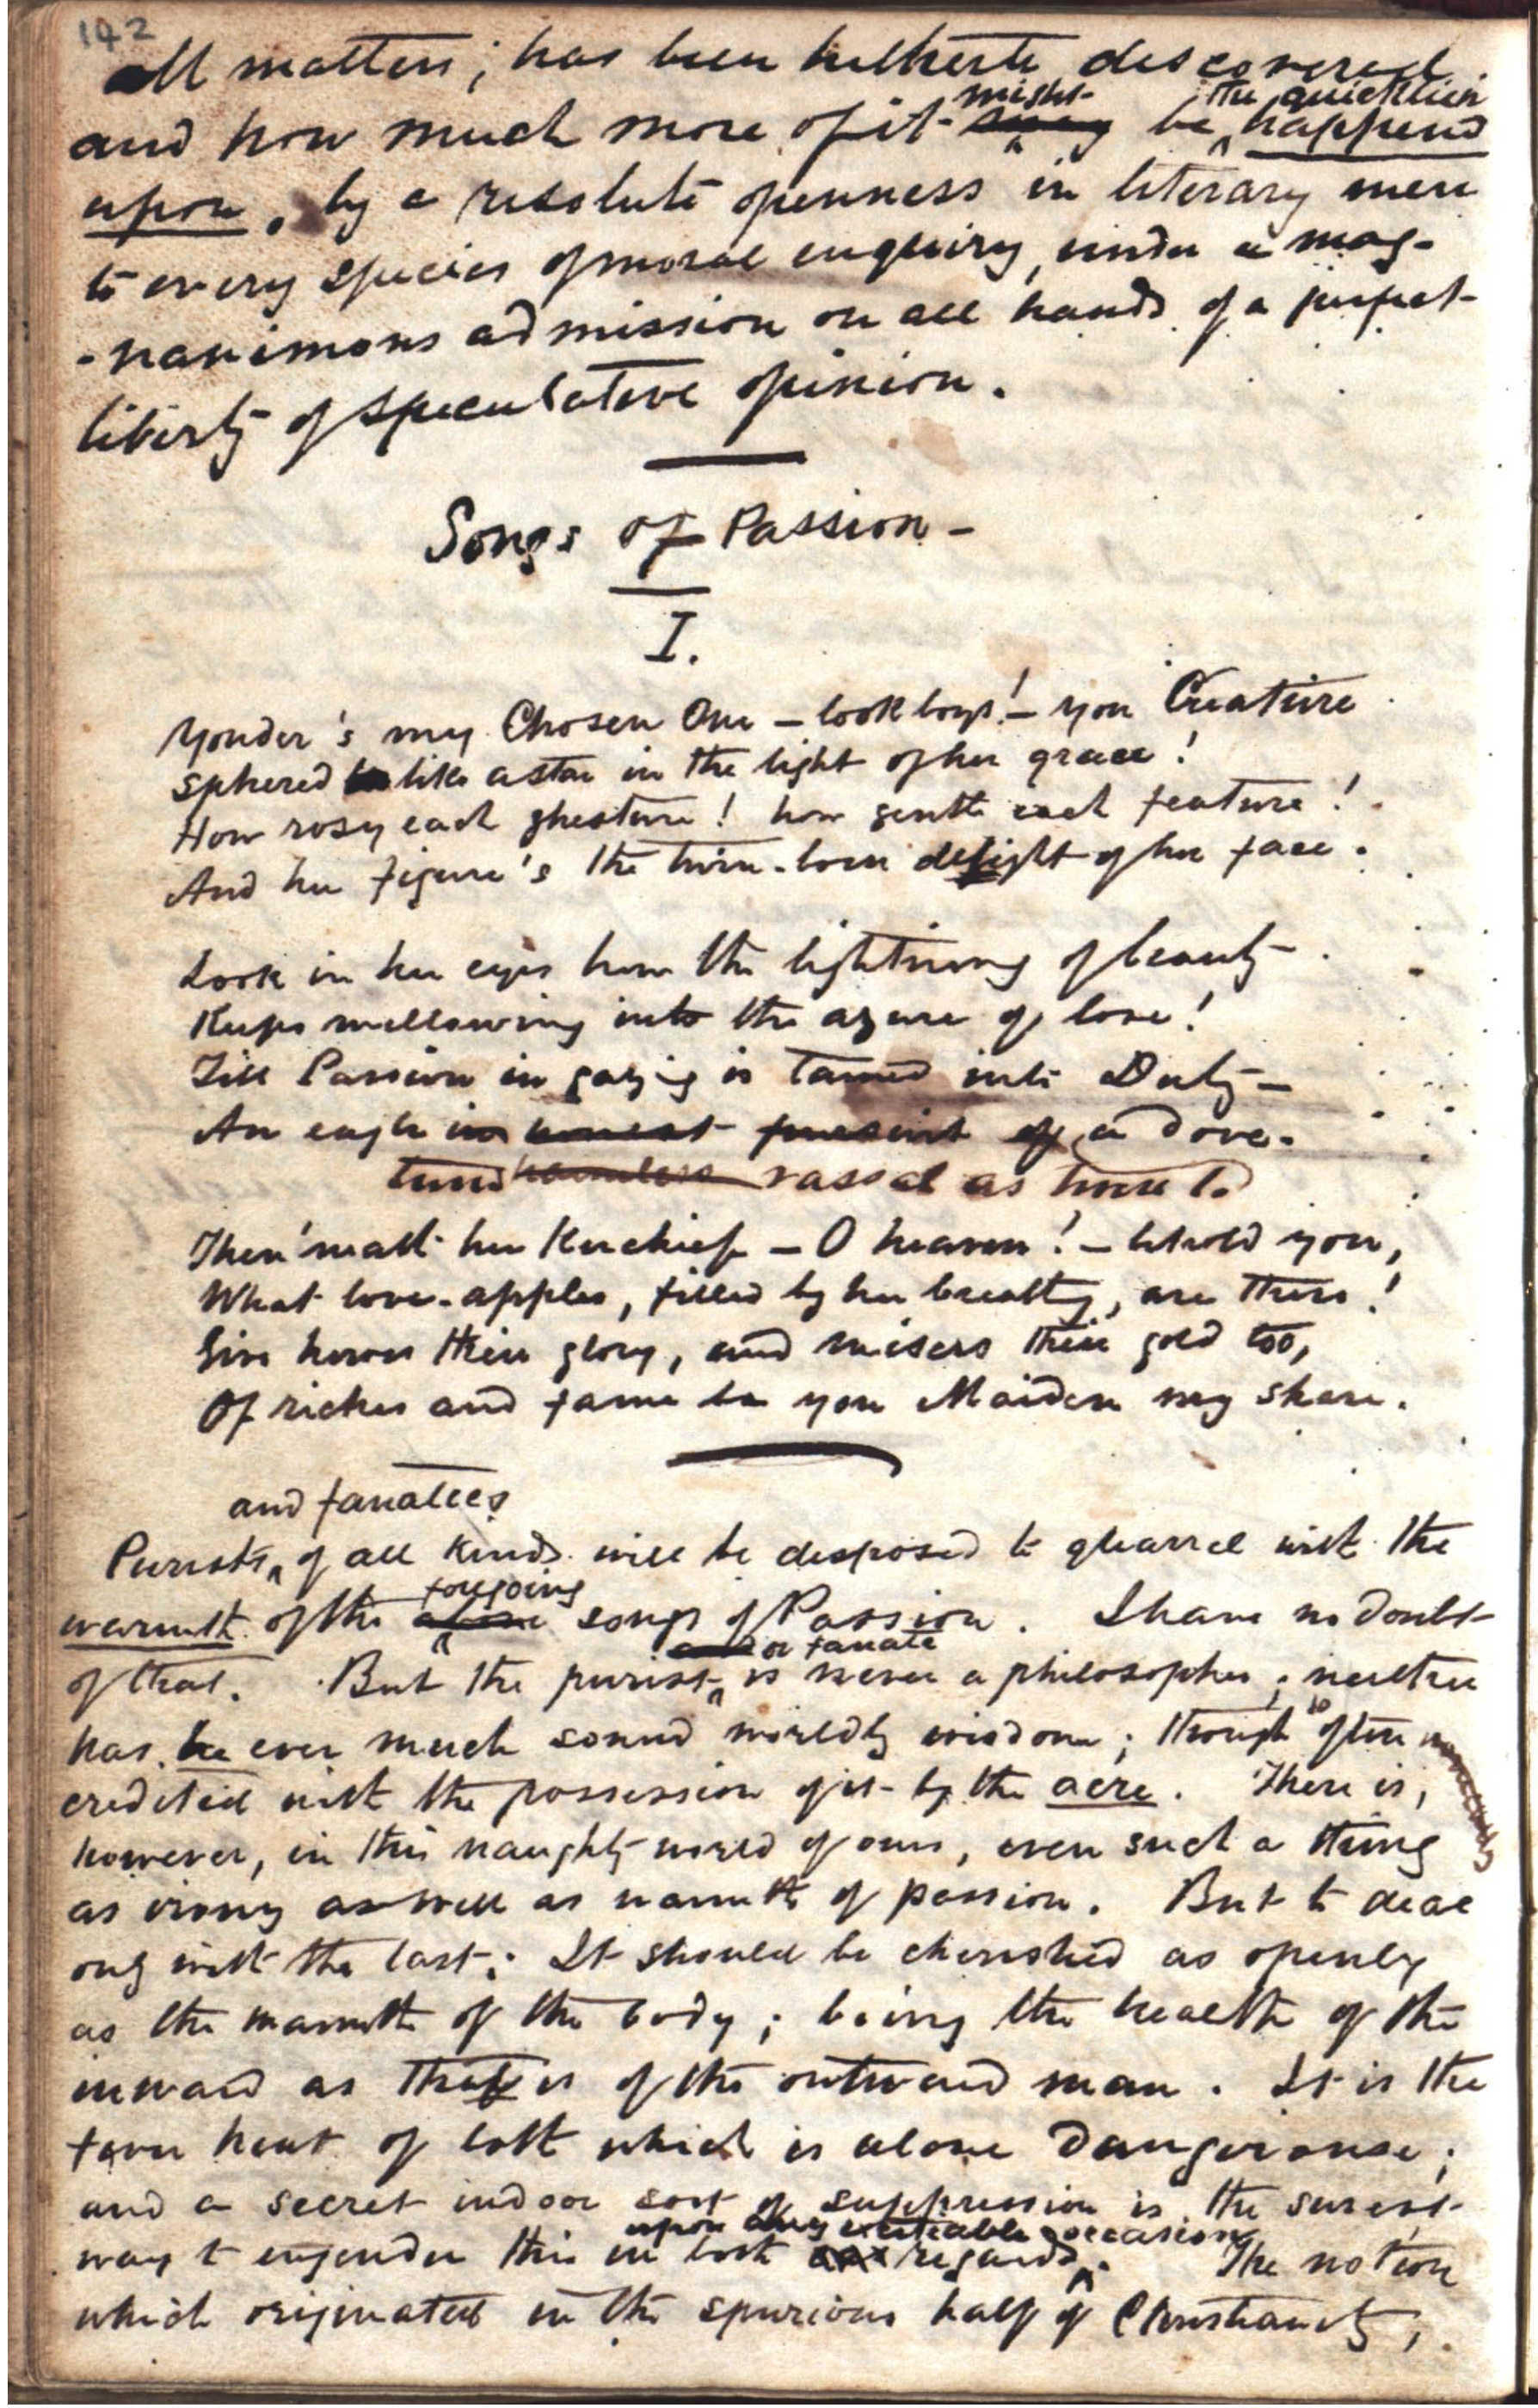 142
all matters; has been hitherto discovered
and how much more of it might be the quicklier happend
upon, by a resolute openness in literary men
to every species of moral enquiry, under a mag-
-nanimous admission on all hands of a perfect
liberty of speculative opinion.
Songs of Passion -
I.
Yonder's my Chosen One – look boys! – yon Creature
Sphered like a star in the light of her grace!
How rosy each ghesture! how gentle each feature!
And her figure's the twin-born delight of her face.
Look in her eyes how the lightning of beauty
Keeps mellowing into the azure of love!
Till Passion in gazing is tamed into Duty –
An eagle in honest pursuit of a dove.
turnd harmless vassal as twere to
Then 'neath her Kerchief – O heaven! – behold you,
What love-apples, filled by her breath, are there!
Give heroes their glory, and misers their gold too,
Of riches and fame be yon Maiden my share.
and fanatics
Purists, of all kinds will be disposed to quarrel with the
warmth of the above foregoing songs of Passion. I have no doubt
of that. But the purist or fanatic is never a philosopher; neither
has he ever much sound worldly wisdom; though so often
credited with the possession of it by the acre. There is,
however, in this naughty world of ours, even such a thing
as irony as well as warmth of passion. But to deal
only with the last: It should be cherished as openly
as the warmth of the body; being the health of the
inward as that is of the outward man. It is the
fever heat of both which is alone dangerouse;
and a secret indoor sort of suppression is the surest
upon any excitable occasion
way to engender this in both regards. The notion
which originated in the spurious half of Christianity,